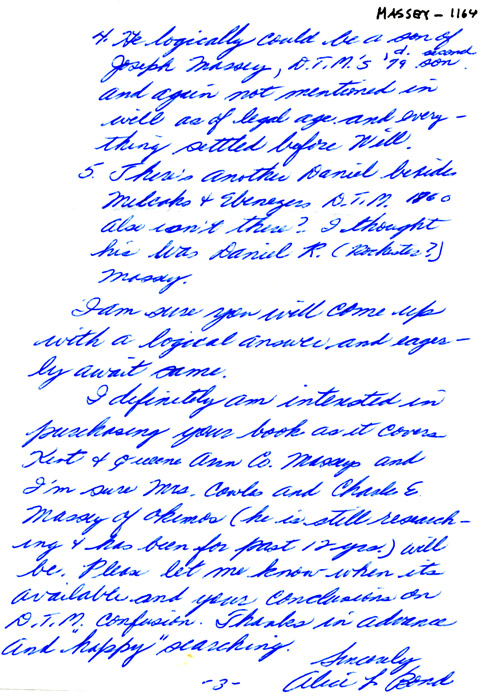 MASSEY - 1164
4. He logically could be a son of
Joseph Massey, D.T.M.'s d. '79 second son.
and again not mentioned in
will as of legal age and every-
thing settled before Will.
5. There's another Daniel besides
& Ebenezers D.T.M. 1860
also isn't there? I thought
his was Daniel R. (Rochester?)
Massey.
I am sure you will come up
with a logical answer and eager-
ly await same.
I definitely am intersted in
purchasing your book as it covers
Kent & Queene Ann Co. Masseys and
I'm sure Mrs. Cowles and Charles E.
Massey of Okemos (he is still research-
ing & has been for past 12-yrs.) will
be. Please let me know when its
available and your conclusions on
D.T.M. confusion. Thanks in advance
and "happy" searching.
Sincerely
-3- Alice L. Bond